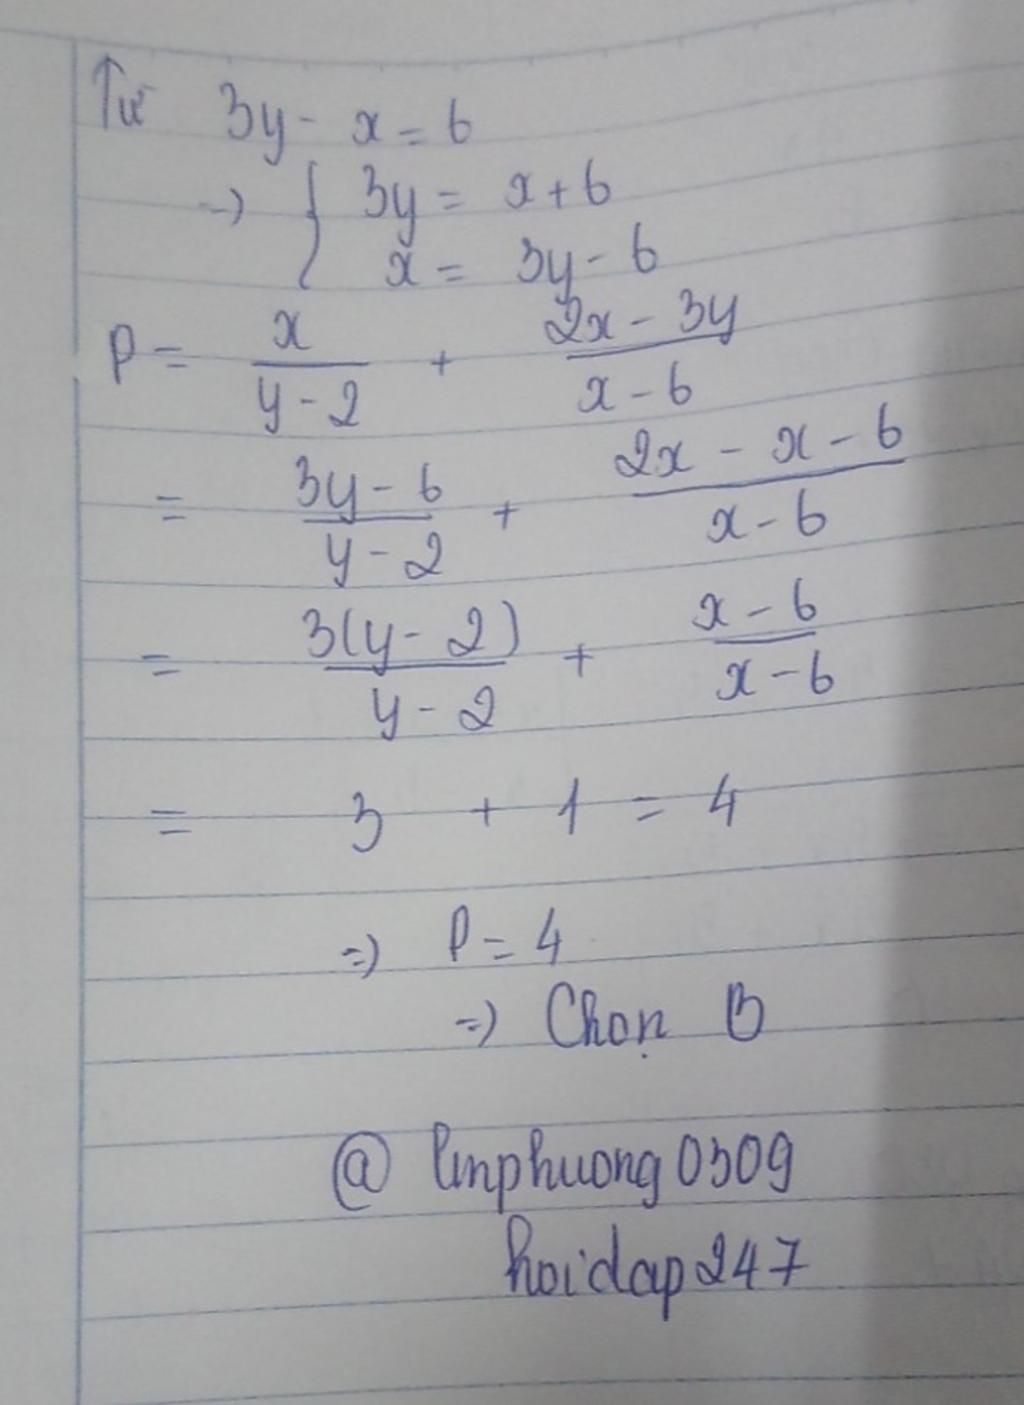 Từ 3y - x = 6
=> { 3y = x + 6
x = 3y - 6
P = x/(y - 2) + (2x - 3y)/(x - 6)
= (3y - 6)/(y - 2) + (2x - x - 6)/(x - 6)
= 3(y - 2)/(y - 2) + (x - 6)/(x - 6)
= 3 + 1 = 4
=> P = 4
=> Chọn B
@ linphuong0309
hoidap247